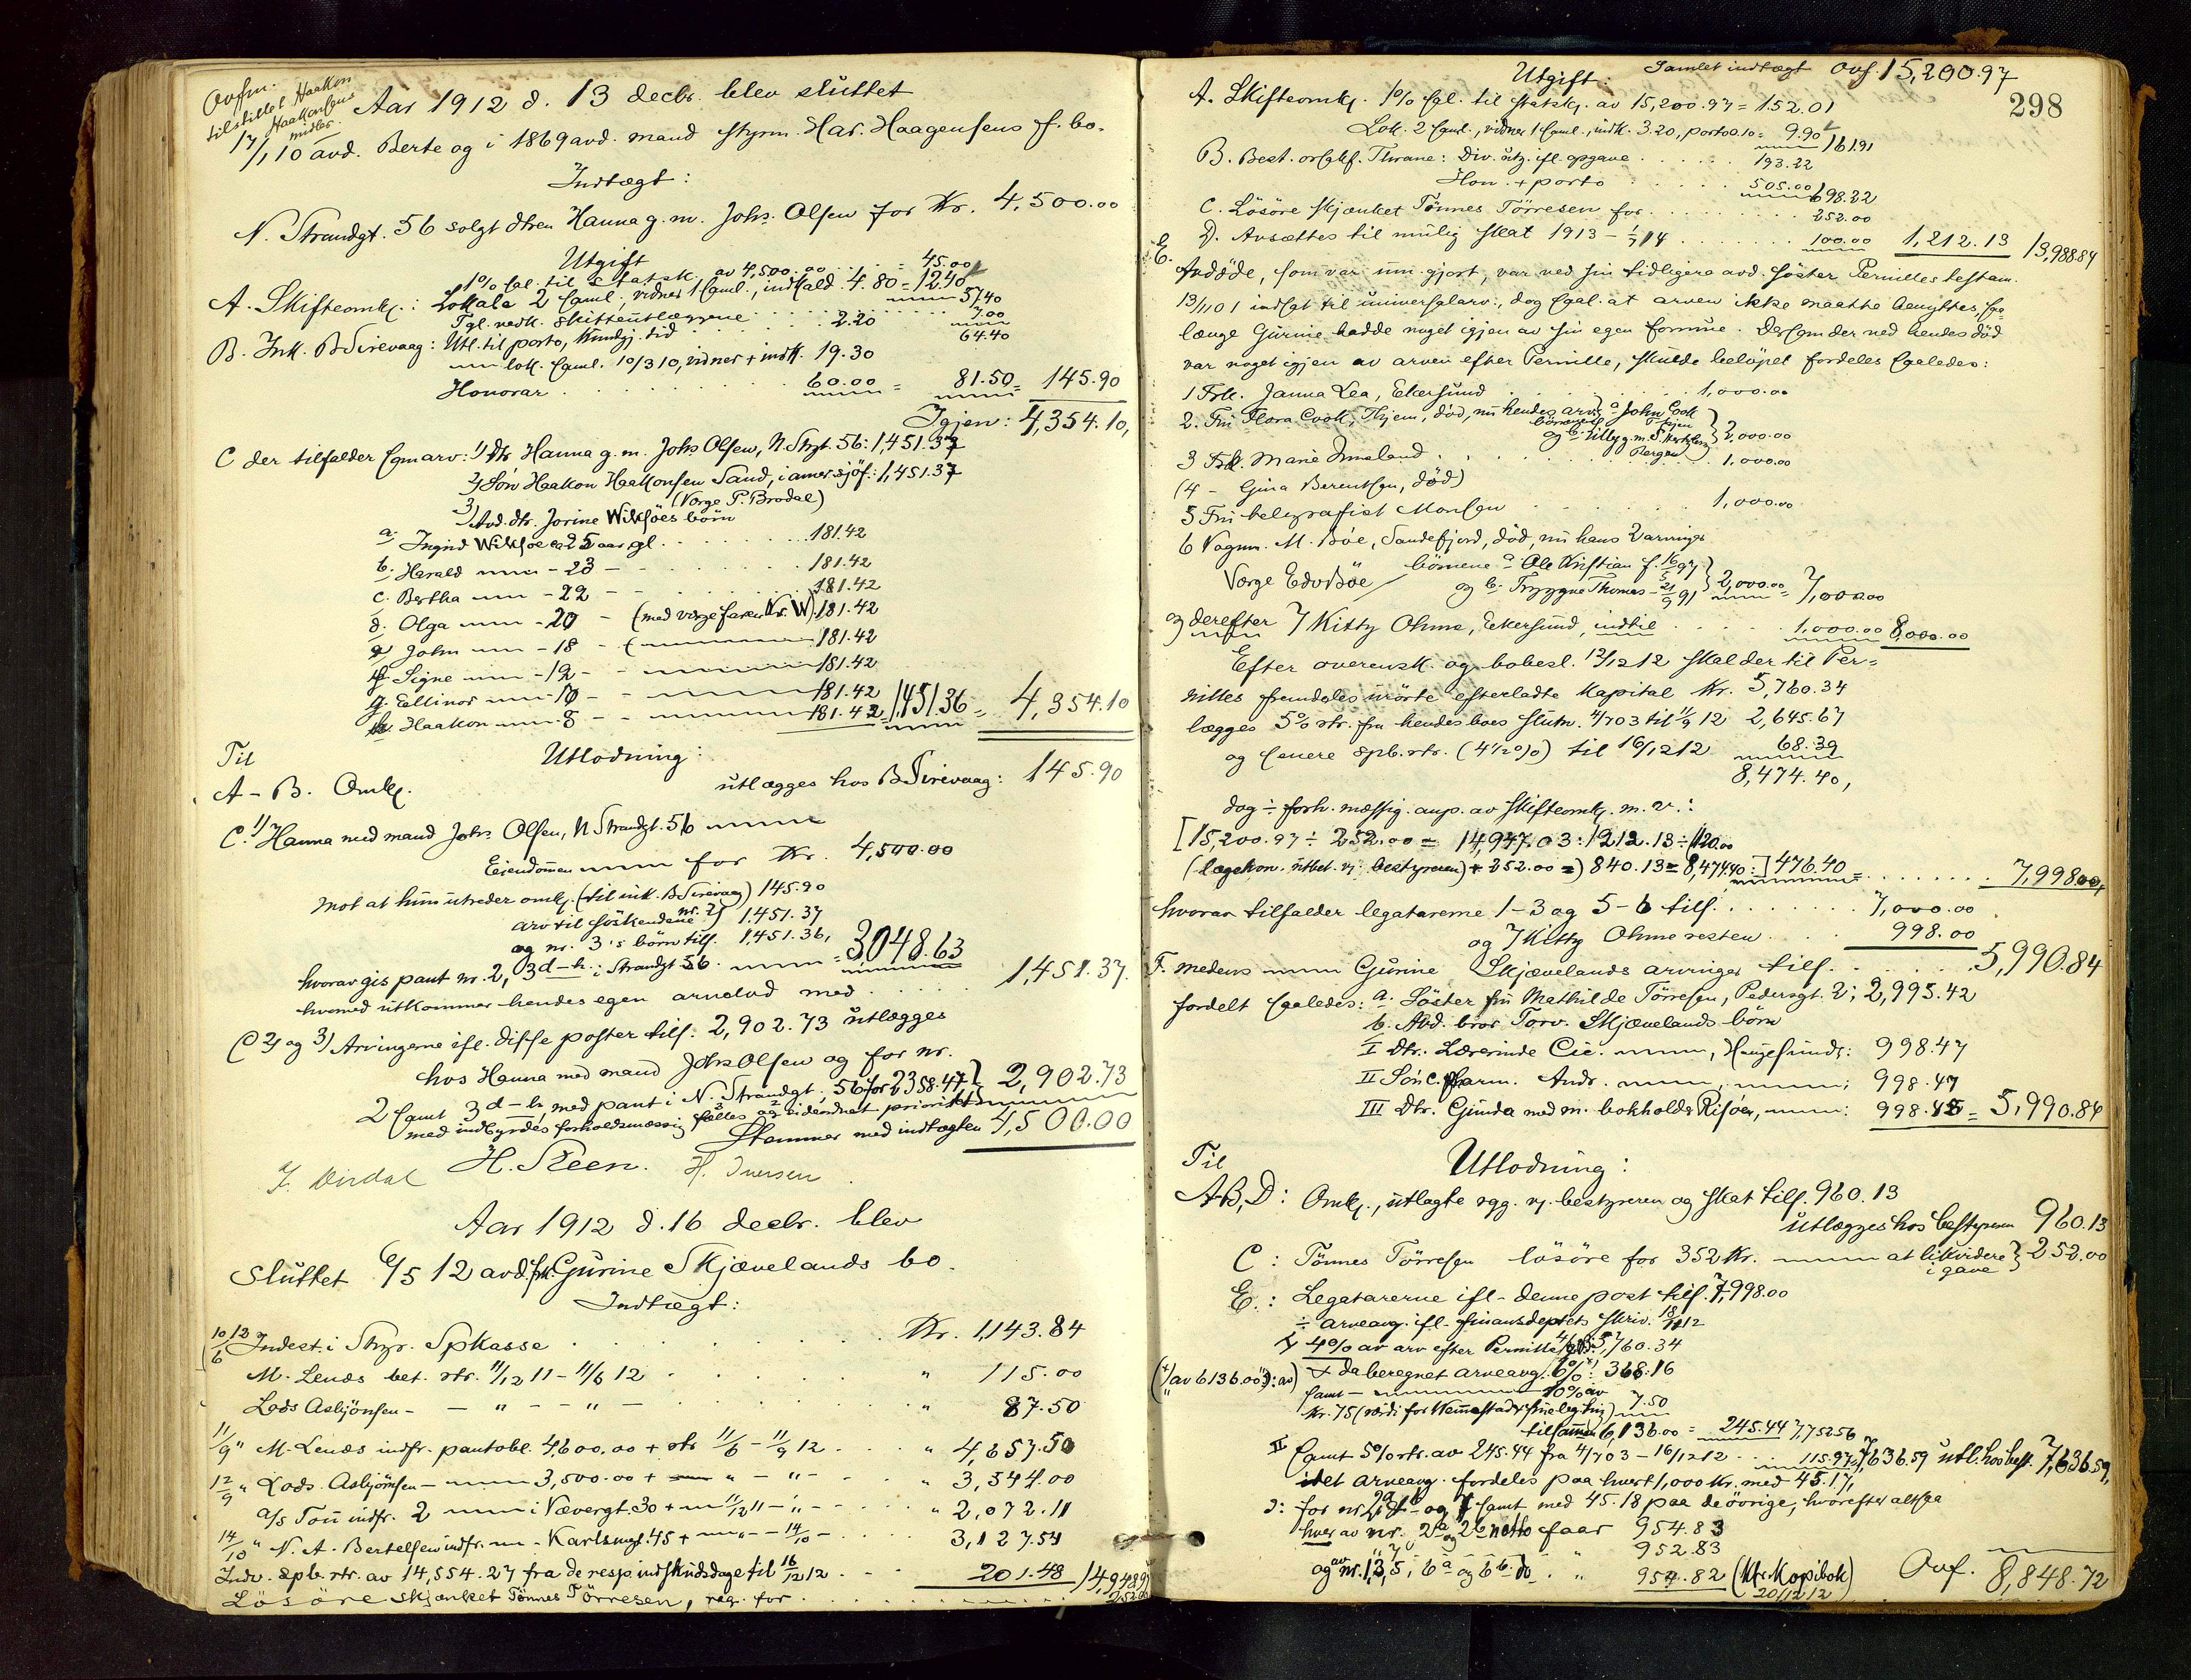 Ovfm.
tilstillet Haakon
Haakonsens
midler.
Aar 1912 d. 13 decbr. blev sluttet
17/1 10 avd. Berte og i 1869 avd. mand styrm. Har. Haagensens f. bo.
Indtægt:
N. Strandgt. 56 solgt dtren Hanna g. m. Johs. Olsen for Kr. 4,500.00
Utgift
1% sal. til Statsk. av 4,500.00 = 45.00
A. Skifteomk.: Lokale 2 saml., vidner 1 saml., indkald. 4.80 = 12.40
57.40
Tgl. vedk. skifteutlæggene 7.00
B. Ink. B Sirevaag: Utl. til porto, kundgj. tid 2.20 64.40
lok. saml. 10/3 10, vidner + indk. 19.30
Honorar 60.00 = 81.50 = 145.90
Igjen: 4,354.10,
C der tilfalder som arv: 1) Dtr Hanna g. m. Johs Olsen, N. Strgt. 56: 1,451.37
2) Søn Haakon Haakonsen Sand, i amer. sjøf.: 1,451.37
(Verge P. Brodal)
3) Avd. dtr. Jorine Wiksöes börn
a. Ingrid Wiksöe ca 25 aar gl. 181.42
b. Harald - 23 - 181.42
c. Bertha - 22 - 181.42
d. Olga - 20 - (med verge faren Kr. W) 181.42
e. John - 18 - 181.42
f. Signe - 12 - 181.42
g. Ellinor - 10 - 181.42
h. Haakon - 8 - 181.42 = 1,451.36 = 4,354.10
Til Utlodning:
A - B. Omk. utlægges hos B Sirevaag: 145.90
C. 1) Hanna med mand Johs Olsen, N Strandgt. 56
Eiendommen for Kr. 4,500.00
Mot at hun utreder omk. (til ink. B Sirevaag) 145.90
arv til söskendene nr. 2) 1,451.37
og nr. 3's börn tils. 1,451.36,
3048.63
hvorav gis pant nr. 2, 3 d-h i Strandgt 56
hvormed utkommer hendes egen arvelod med 1,451.37.
C 2) og 3) Arvingerne ifl. disse poster tils. 2,902.73 utlægges
hos Hanna med mand Johs Olsen og for nr. 2,902.73
2 samt 3 d-h, med pant i N. Strandgt. 56 for 2358.47,
med indbyrdes forholdsmæssig fælles og sideordnet prioritet
Stemmer med indtægten 4,500.00
J. Dirdal H. Steen. H. Iversen
Aar 1912 d. 16 decbr. blev
sluttet 6/5 12 avd. frk. Gurine Skjævelands bo.
Indtægt:
10/6 12 Indest. i Str. Spkasse Kr. 1,143.84
M. Lends bet. rtr. 11/12 11 - 11/6 12 " 115.00
Lods Asbjönsen - " - " - " 87.50
11/9 " M. Lends indfr. pantobl. 4,600.00 + rtr 11/6 - 11/9 12 " 4,657.50
12/9 " Lods. Asbjörnsen - 3,500.00 + " - " - " 3,544.00
a/s Tou indfr. 2 i Vævergt. 30 + 11/12 11 - " - " 2,072.11
14/10 " N. A. Bertelsen indfr. - Karlsmgt. 45 + - 14/10 - 3,127.54
Indv. spb. rtr. av 14,554.27 fra de resp. indskudsdage til 16/12 12 201.48 14,948.97
Lösöre skjænket Tönnes Törresen, reg. for 252.00
298
Utgift: Samlet indtægt Ovf. 15,200.97
A. Skifteomk. 1% sal. til statsk. av 15,200.97 = 152.01
Lok. 2 saml., vidner 1 saml., indk. 3.20, porto 0.10 = 9.90 161.91
B. Best. orsakf. Thrane: Div. utg. ifl. opgave 193.22
Hon. + porto 505.00 698.22
C. Lösöre skjænket Tönnes Törresen for 252.00
D. Avsættes til mulig skat 1913 - 1/7 14 100.00 1,212.13 13,988.84
E. Avdöde, som var um.gjort, var ved sin tidligere avd. söster Pernilles testam.
13/1 01 indsat til universalarv., dog saal. at arven ikke maatte benyttes, saa-
længe Gurine hadde noget igjen av sin egen formue. Dersom der ved hendes död
var noget igjen av arven efter Pernille, skulde belöpet fordeles saaledes:
1 Frk. Janna Lea, Ekersund 1,000.00
2. Fru Flora Cook, Thjem, död, nu hendes arv. börn a John Cook
og b. Lilly g. m. S. Bergen 2,000.00
3 Frk. Marie Imeland 1,000.00
(4 - Gina Berentsen, död)
5 Fru telegrafist Monsen 1,000.00
6 Vognm. M. Böe, Sandefjord, död, nu hans 2 arvinger
Verge Edv Böe börnene a. Ole Kristian f. 16/5 97
og b. Trygve Thomas - 21/9 91 2,000.00 = 7,000.00
og derefter 7 Kitty Ohme, Ekersund, indtil 1,000.00 8,000.00
Efter overensk. og bobesl. 12/12 12 skal der til Per-
nilles fremdeles urörte efterladte kapital Kr. 5,760.34
lægges 5% rtr. fra hendes boes slutn. 4/7 03 til 11/9 12 2,645.67
og senere spb. rtr. (4 1/2 %) til 16/12 12 68.39
8,474.40,
dog ÷ forh. mæssig. anp. av skifteomk. m. v.:
[15,200.97 ÷ 252.00 = 14,947.03 : 1212.13 ÷ 120.00
(lægekon. utbet. vj. bestyreren) + 252.00 =) 840.13 = 8,474.40:] 476.40 = 7,998.00,
hvorav tilfalder legatarerne 1-3 og 5-6 tils. 7,000.00
og 7 Kitty Ohme resten 998.00
F. medens Gurine Skjævelands arvinger tils. 5,990.84
fordelt saaledes: a. Söster fru Mathilde Törresen, Pedersgt. 2; 2,995.42
b. Avd. bror Torv. Skjævelands börn
I Dtr. Lærerinde Cie. , Haugesund: 998.47
II Sön c. farm. Andr. , : 998.47
III Dtr. Gunda med m. bokholder Risöer, : 998.48 = 5,990.84
Til Utlodning:
A B, D: Omk., utlagte rgg. vj. bestyreren og skat tils. 960.13
utlægges hos bestyreren 960.13
C: Tönnes Törresen lösöre for 352 Kr. at likvidere i gave 252.00
E.: Legatarerne ifl. denne post tils. 7,998.00
÷ arveavg. ifl. finansdeptets skriv. 18/11 12
4% av arv efter Pernille 5,760.34
(av 6136.00 + da beregnet arveavg. 6%: 368.16
samt - 10% av 7.50
Kr. 75
tilsammen 6,136.00 = 245.44 7,752.56
II samt 5% rtr. av 245.44 fra 4/7 03 - 16/12 12 115.97 = 7,636.59 utl. hos best. 7,636.59,
idet arveavg. fordeles paa hvert 1,000 Kr. med 45.17,
ɔ: for nr. og 7 samt med 45.18 paa de övrige, hvorefter altsaa
hver av nr. 2a og 2b netto faar 954.83
" 7 " 952.83
og av nr. 1, 3, 5, 6a og 6b do. " 954.82 (Kfr. Kopibok)
20/12 12
Ovf. 8,848.72